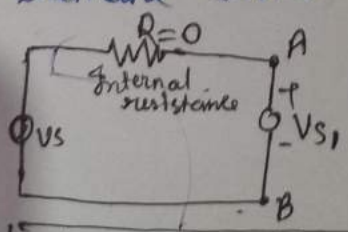 R=0
A
Internal
resistance
+
VS
VS1
-
B